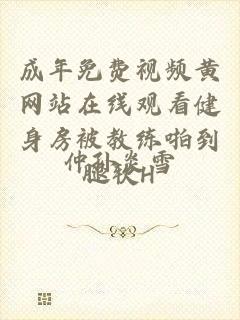 成年免费视频黄
网站在线观看健
身房被教练啪到
腿软H
仲孙炎雪